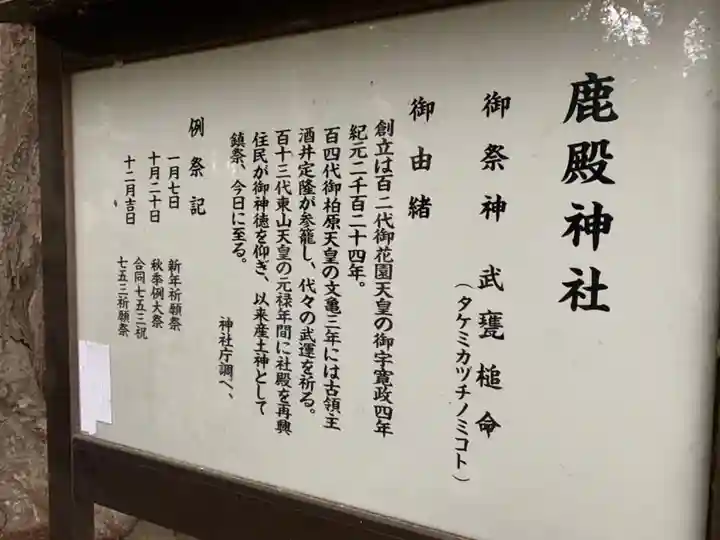 鹿殿神社
御祭神 武甕槌命
(タケミカヅチノミコト)
御由緒
創立は百二代御花園天皇の御宇寛政四年
紀元二千百二十四年。
百四代御柏原天皇の文亀三年には古領主
酒井定隆が参籠し、代々の武運を祈る。
百十三代東山天皇の元禄年間に社殿を再興
住民が御神徳を仰ぎ、以来産土神として
鎮祭、今日に至る。
神社庁調べ、
例祭記
一月七日 新年祈願祭
十月二十日 秋季例大祭
合同七五三祝
十二月吉日 七五三祈願祭